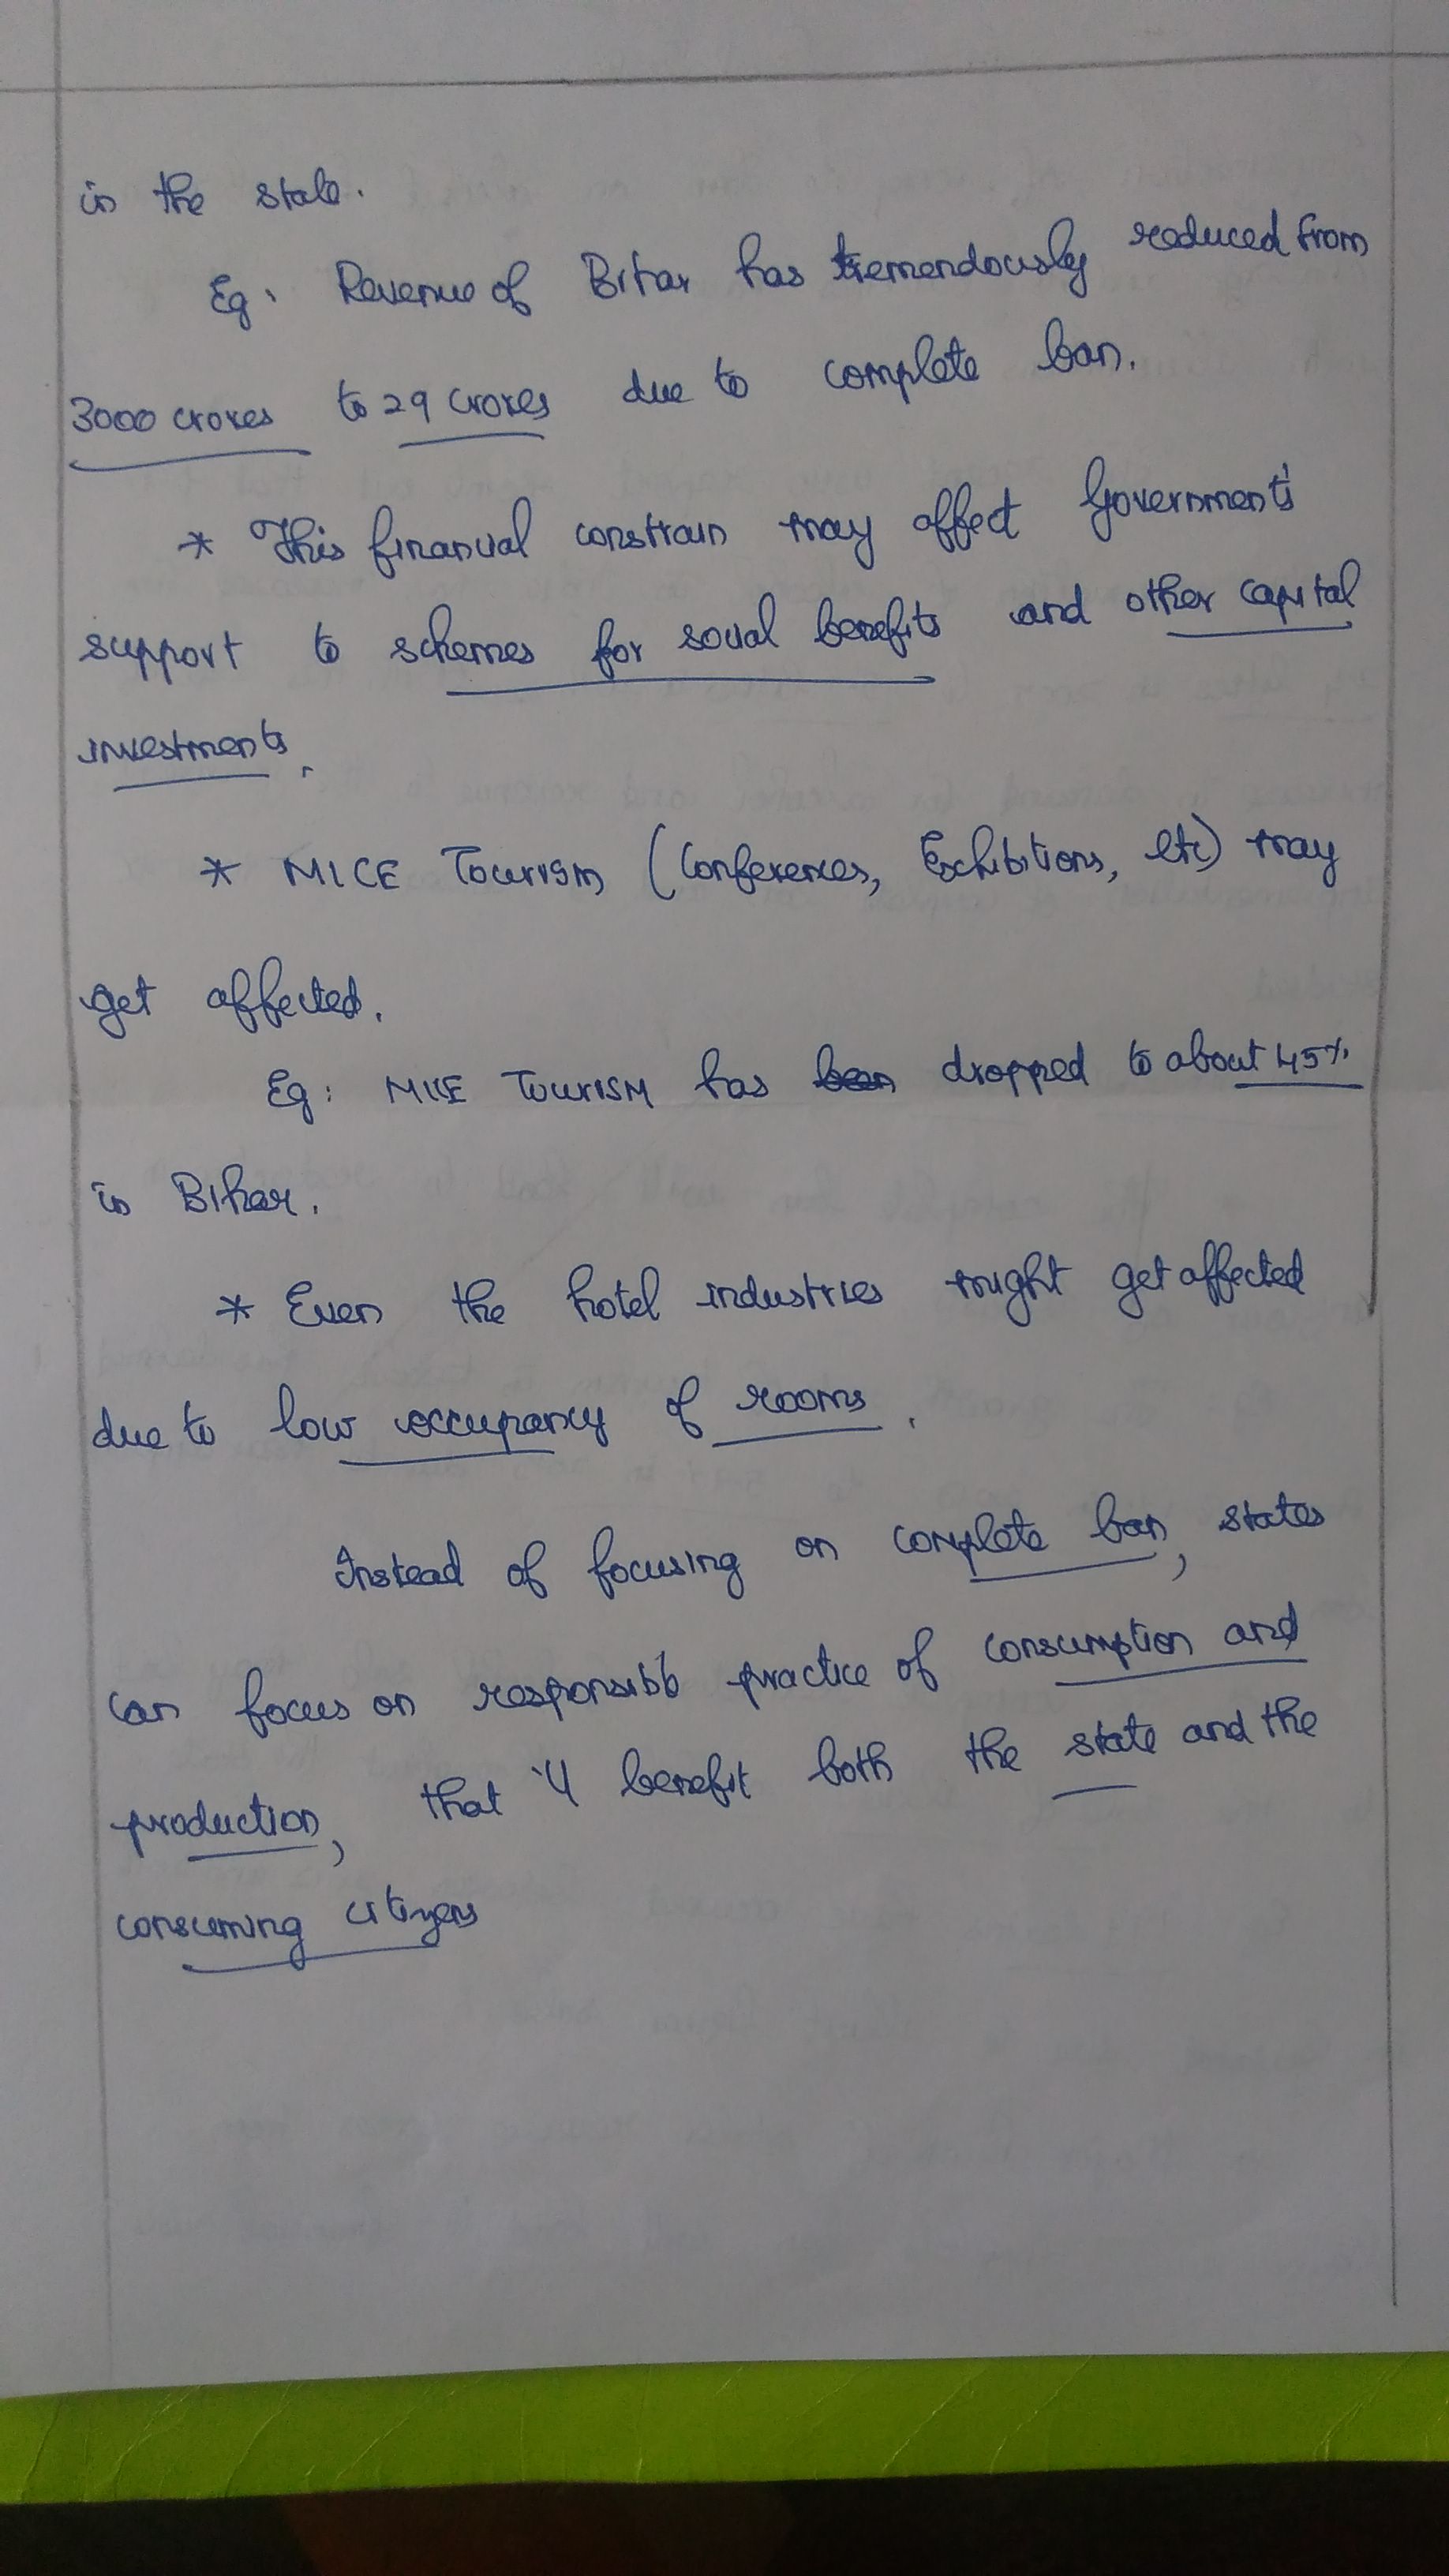 in the state.
Eg: Revenue of Bihar has tremendously reduced from
3000 crores to 29 crores due to complete ban.
* This financial constrain may affect Government's
support to schemes for social benefits and other capital
investments.
* MICE Tourism (Conferences, Exhibitions, etc) may
get affected.
Eg: MICE Tourism has been dropped to about 45%
in Bihar.
* Even the hotel industries might get affected
due to low occupancy of rooms.
Instead of focusing on complete ban, states
can focus on responsible practice of consumption and
production, that 'll benefit both the state and the
consuming citizens